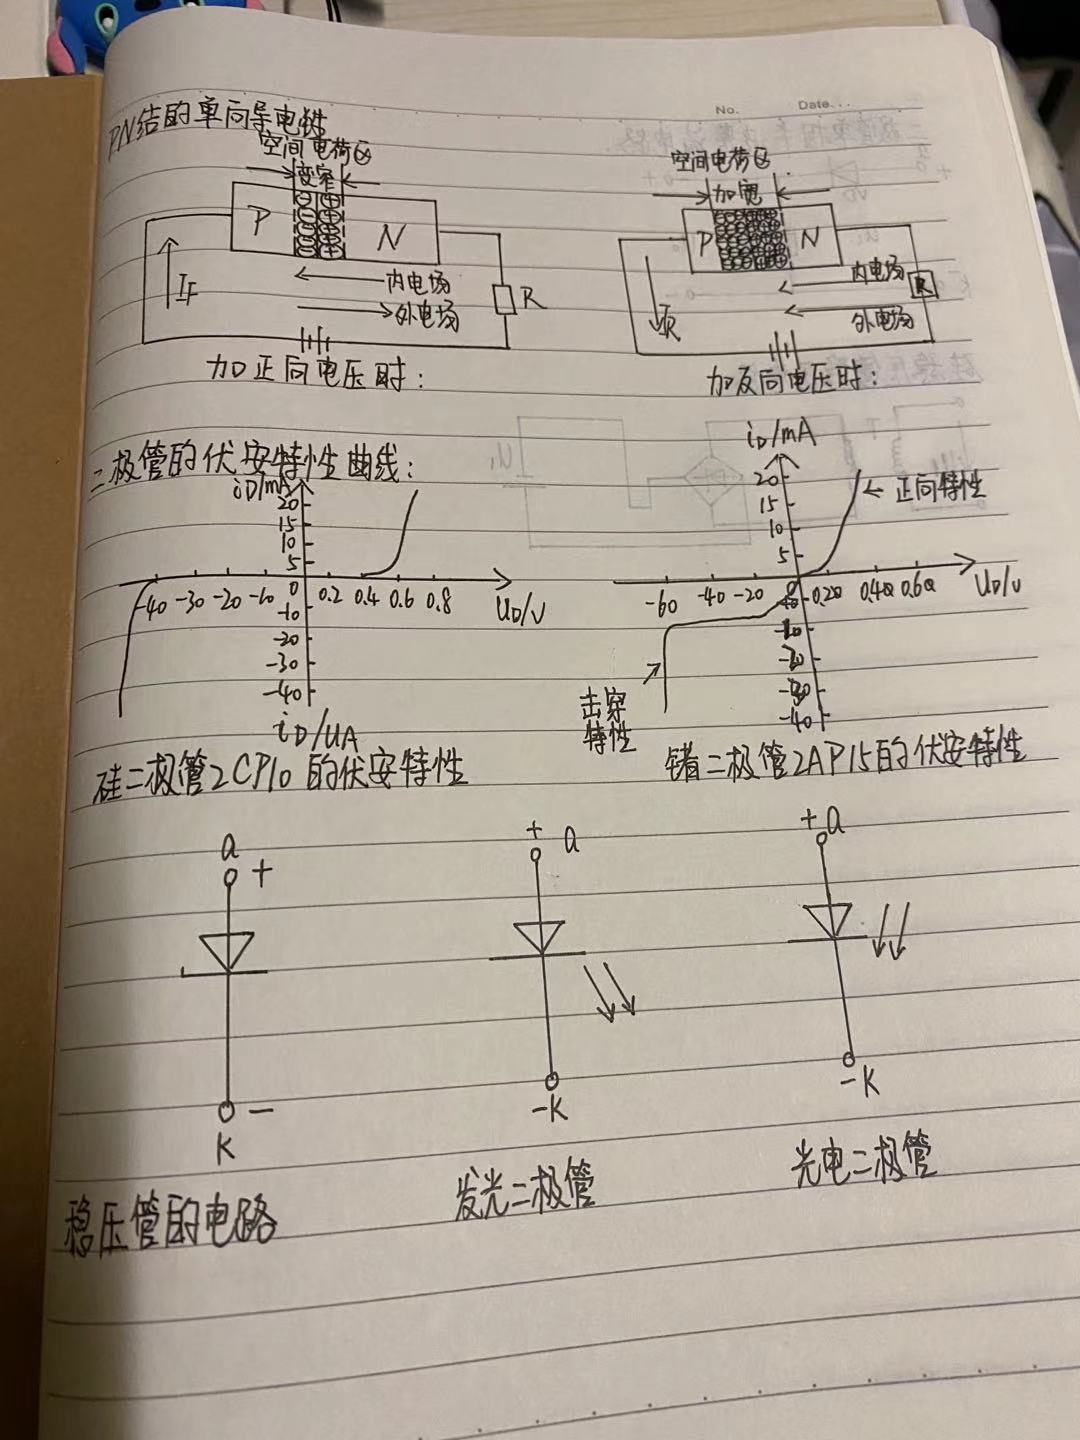 No. Date...
PN结的单向导电性
空间电荷区
变窄
P N
内电场
外电场
IF
R
加正向电压时:
空间电荷区
加宽
P N
内电场
外电场
IR
R
加反向电压时:
二极管的伏安特性曲线:
iD/mA
20
15
10
5
-40 -30 -20 -10 0 0.2 0.4 0.6 0.8
UD/V
-10
-20
-30
-40
iD/UA
硅二极管2CP10的伏安特性
iD/mA
20
15
10
5
正向特性
-60 -40 -20 0 0.20 0.40 0.60
UD/V
-40
击穿
特性
锗二极管2AP15的伏安特性
a
+
-
K
稳压管的电路
+ a
-K
发光二极管
+a
-K
光电二极管